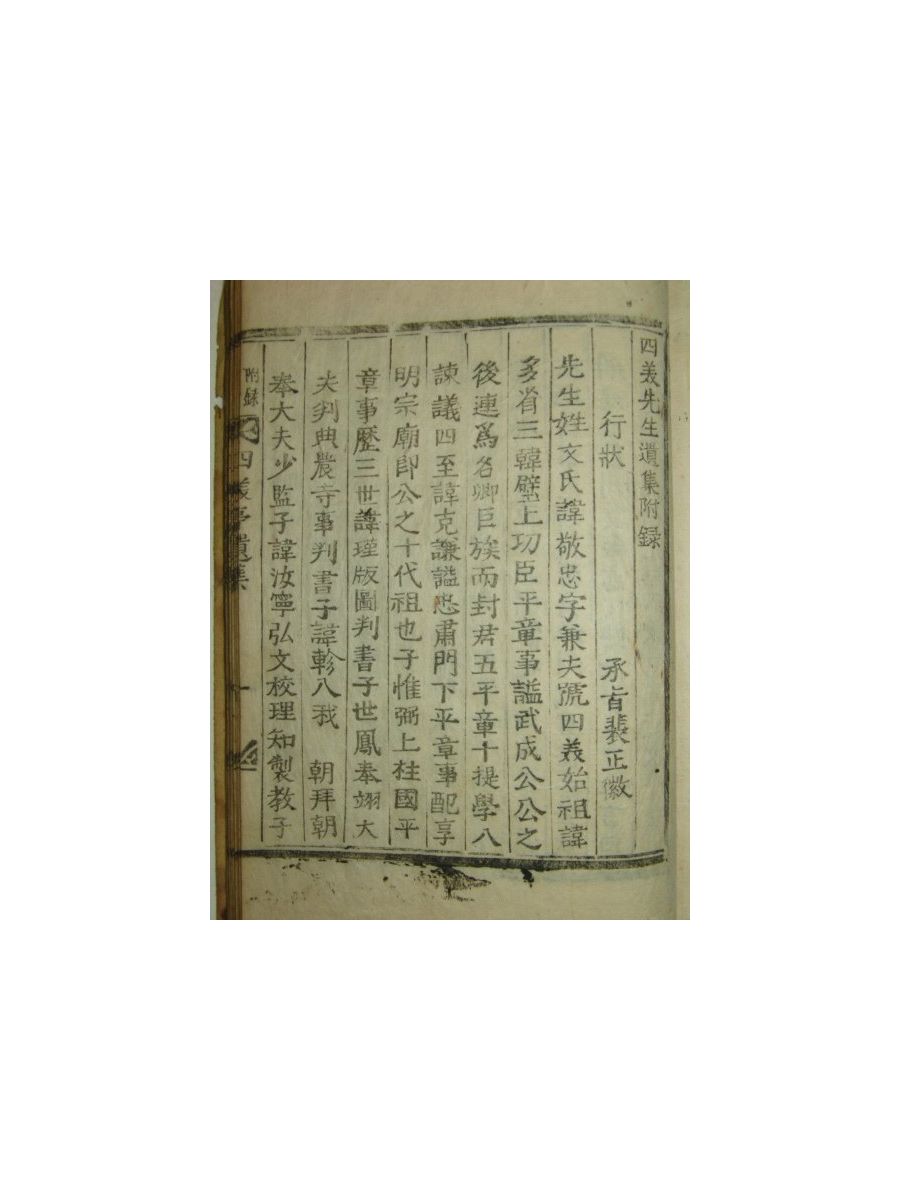 四義先生遺集附録
行狀
承旨裴正徽
先生姓文氏諱敬忠字兼夫號四義始祖諱
多省三韓壁上功臣平章事謚武成公公之
後連爲名卿巨族而封君五平章十提學八
諫議四至諱克謙謚忠肅門下平章事配享
明宗廟即公之十代祖也子惟弼上柱國平
章事歷三世諱瑾版圖判書子世鳳奉翊大
夫判典農寺事判書子諱軫入我 朝拜朝
奉大夫少監子諱汝寧弘文校理知製教子
附録
四義亭遺集
一